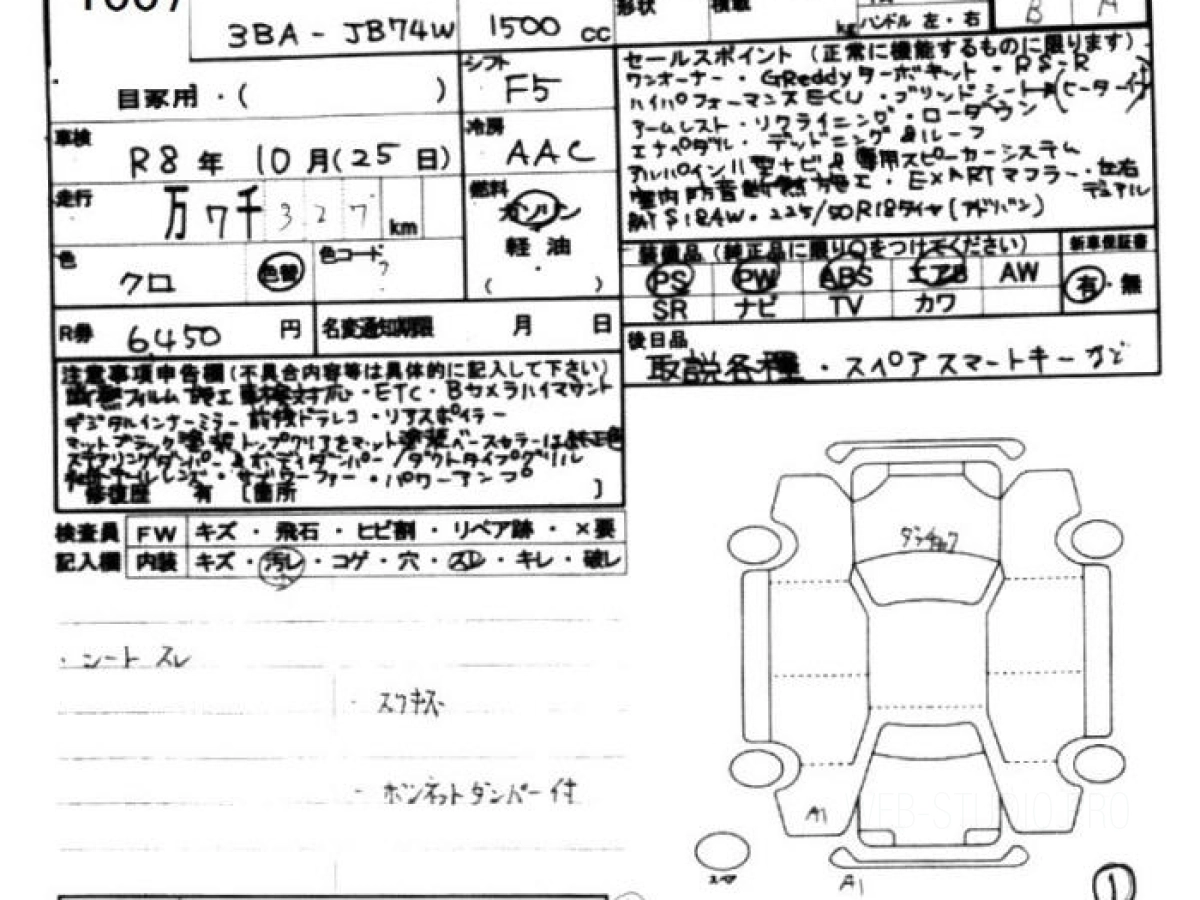 3BA - JB74W 1500 cc
形状
ハンドル 左・右
B A
自家用・( )
シフト F5
車検 R8年 10月(25日)
冷房 AAC
走行 万7千327 km
燃料 ガソリン
軽油
( )
色 クロ 色替 色コード ?
R券 6,450 円 名変通知期限 月 日
セールスポイント (正常に機能するものに限ります)
ワンオーナー・GReddyターボキット・RS-R
ハイパフォーマンスECU・ブリッドシート(ヒーター付)
アームレスト・リクライニング・ローダウン
デッドニング
アルパイン11型ナビ&専用スピーカーシステム
室内防音断熱施工・EXARTマフラー・左右
デュアル
18AW・225/50R18タイヤ(アドバン)
装備品 (純正品に限り○をつけてください) 新車保証書
PS PW ABS エアB AW 有・無
SR ナビ TV カワ
後日品
取説各種・スペアスマートキーなど
注意事項申告欄(不具合内容等は具体的に記入して下さい)
フィルム施工 車検対応・ETC・Bカメラハイマウント
デジタルインナーミラー 前後ドラレコ・リアスポイラー
マットブラック塗装トップクリアをマット塗装ベースカラーは純正色
ステアリングダンパー&ボディダンパー/ダクトタイプグリル
テールレンズ・サブウーファー・パワーアンプ
修復歴 有 [箇所 ]
検査員 FW キズ・飛石・ヒビ割・リペア跡・×要
記入欄 内装 キズ・汚レ・コゲ・穴・スレ・キレ・破レ
・シートスレ
・スリキズ
・ボンネットダンパー付
ダンチョウ
A1
A1
スペア
1
WEB-STUDIO.PRO